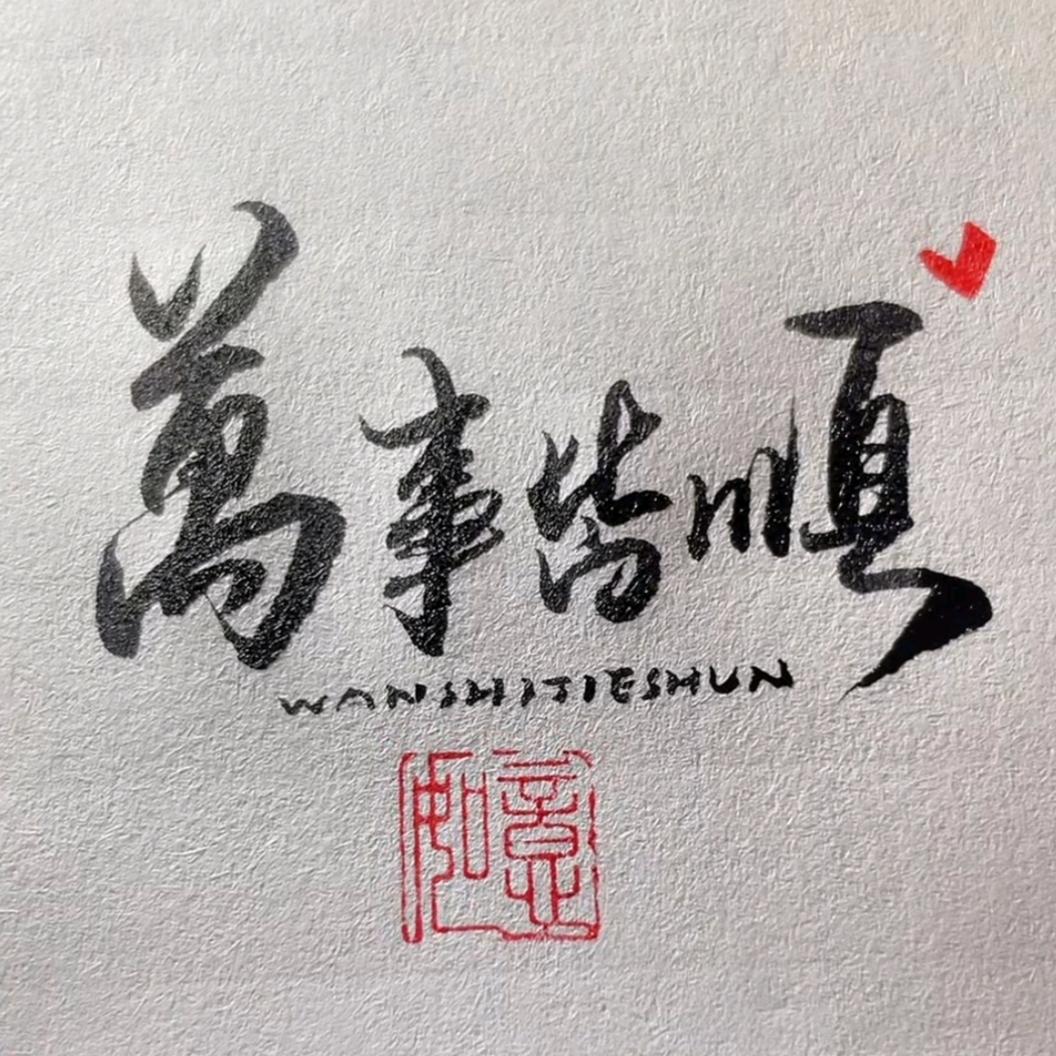 萬事皆順
WANSHIJIESHUN
如意